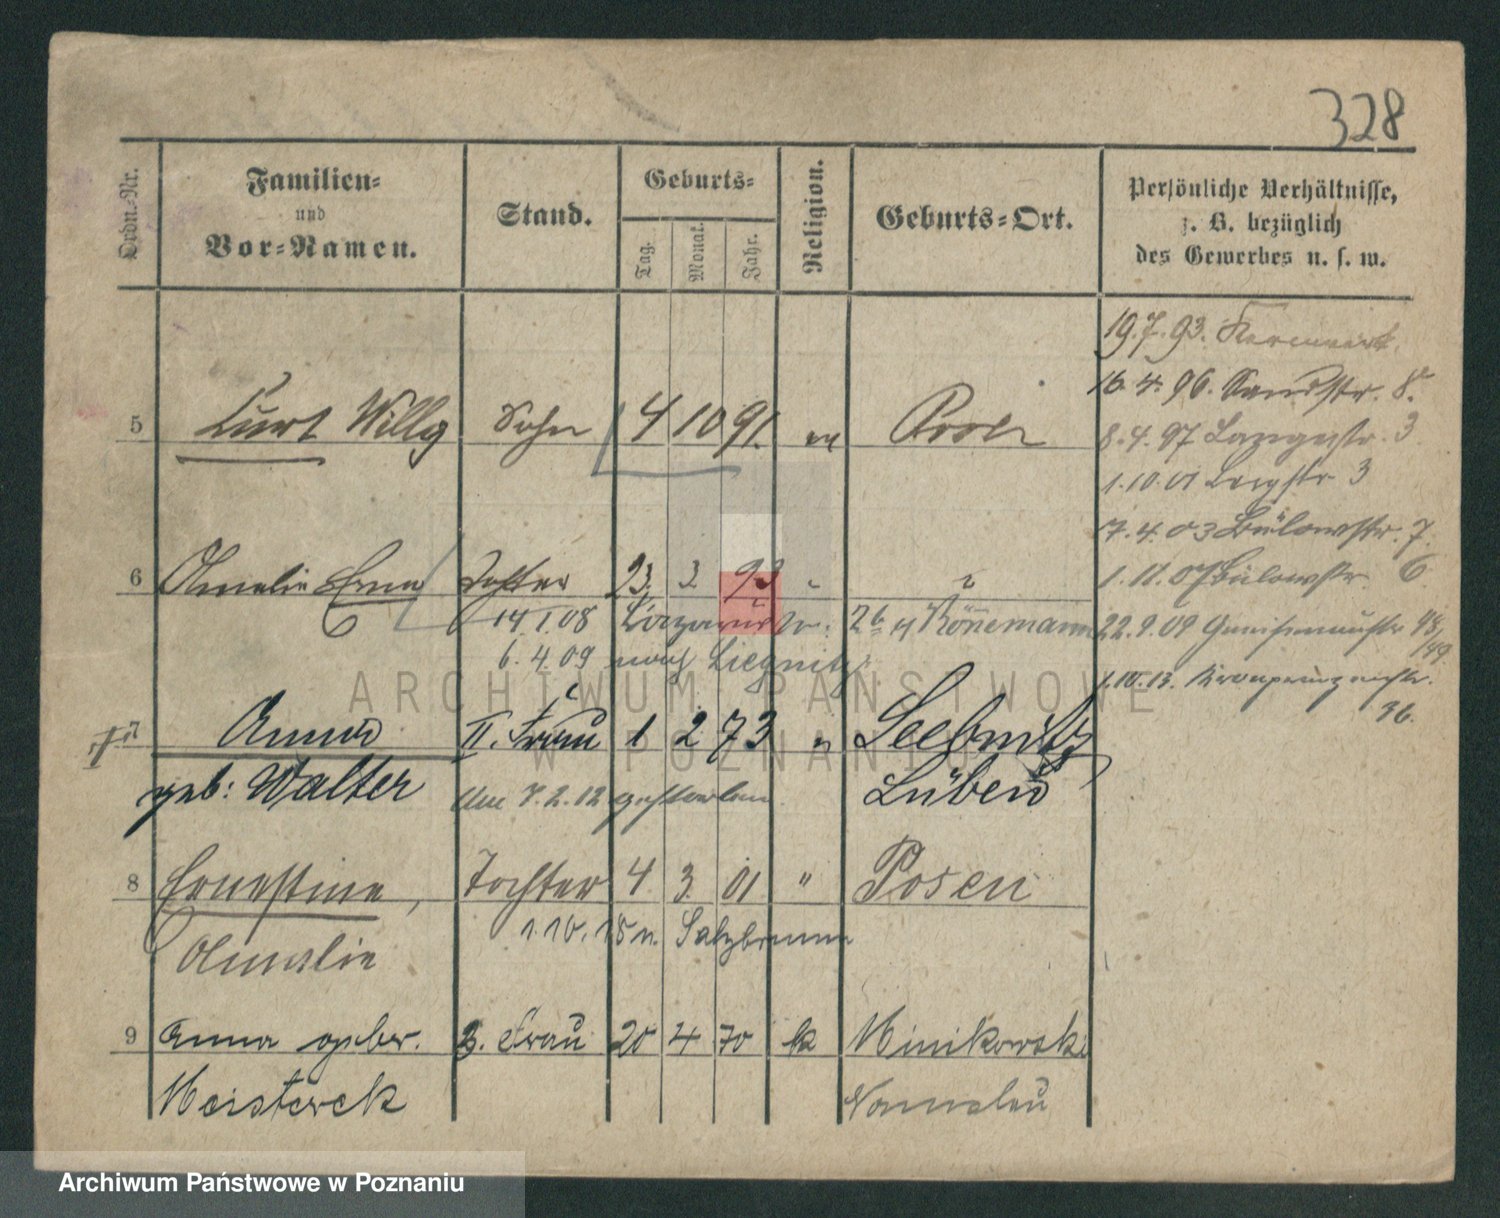 328
Ordn.-Nr.
Familien-
und
Vor-Namen.
Stand.
Geburts-
Tag.
Monat.
Jahr.
Religion.
Geburts-Ort.
Persönliche Verhältnisse,
z. B. bezüglich
des Gewerbes u. s. w.
19.7.93.
16.4.96. Sandstr. 8.
8.4.97 Langestr. 3
1.10.01 3
7.4.03 Bülowstr. 7.
1.11.07 Bülowstr. 6
22.9.09 Gneisenaustr
1.10.13. Kronprinzenstr.
36.
5 Curt Willy Sohn 4 10 91. Posen
6 Amalie Erna Tochter 23. 3 93
14 1.08 Lazarusstr. 26 Könnemann
6.4.09 nach Liegnitz
7 Anna II. Frau 1 2 73 " Seebnitz
geb: Walter Am 7.2.12 gestorben Lüben
8 Ernestine, Tochter 4 3. 01 " Posen
1.10.15 n. Salzbrunn
Amalie
9 Anna gebor. 3. Frau 20 4 70 k Minikowski
Meisterek Namslau
ARCHIWUM PAŃSTWOWE
W POZNANIU
Archiwum Państwowe w Poznaniu